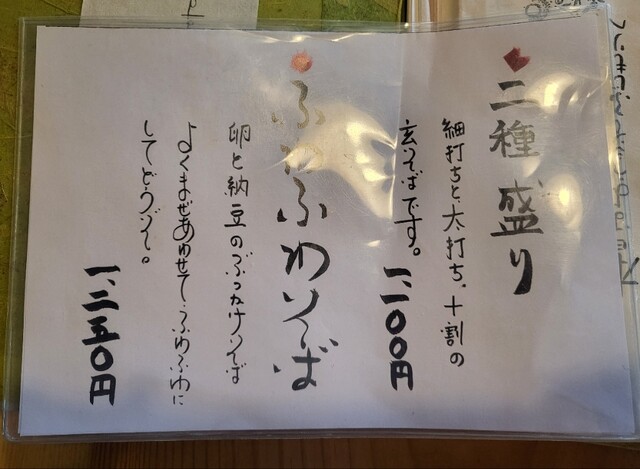 二種盛り
細打ちと太打ち。十割の
玄そばです。
一、一〇〇円
ふわふわそば
卵と納豆のぶっかけそば
よくまぜあわせて、ふわふわに
してどうぞ。
一、二五〇円